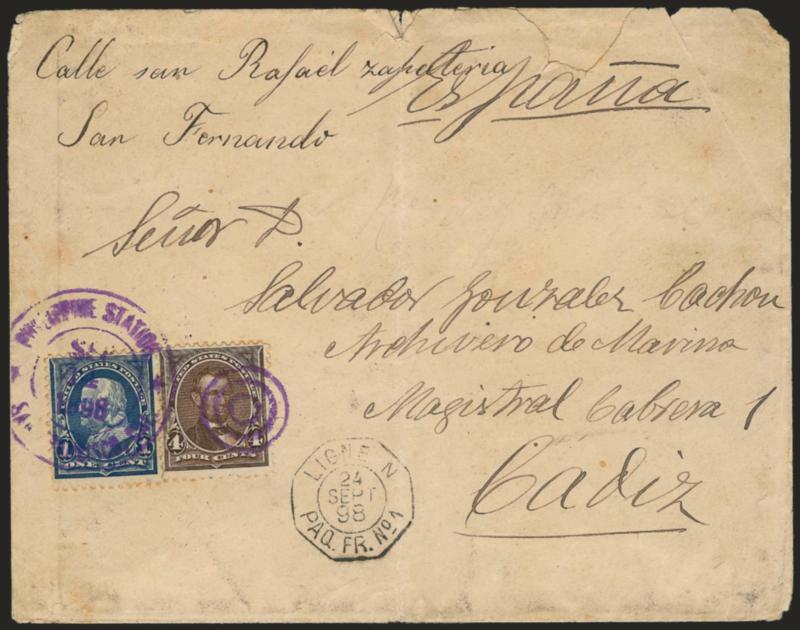 Calle san Rafael zapateria
España
San Fernando
Señor D.
Salvador Gonzalez Cachon
Archivero de Marina
Magistral Cabrera 1
Cadiz
PHILIPPINE STATION
98
UNITED STATES POSTAGE
1 1
ONE CENT
UNITED STATES POSTAGE
4 4
FOUR CENTS
LIGNE N
24
SEPT
98
PAQ. FR. No 1